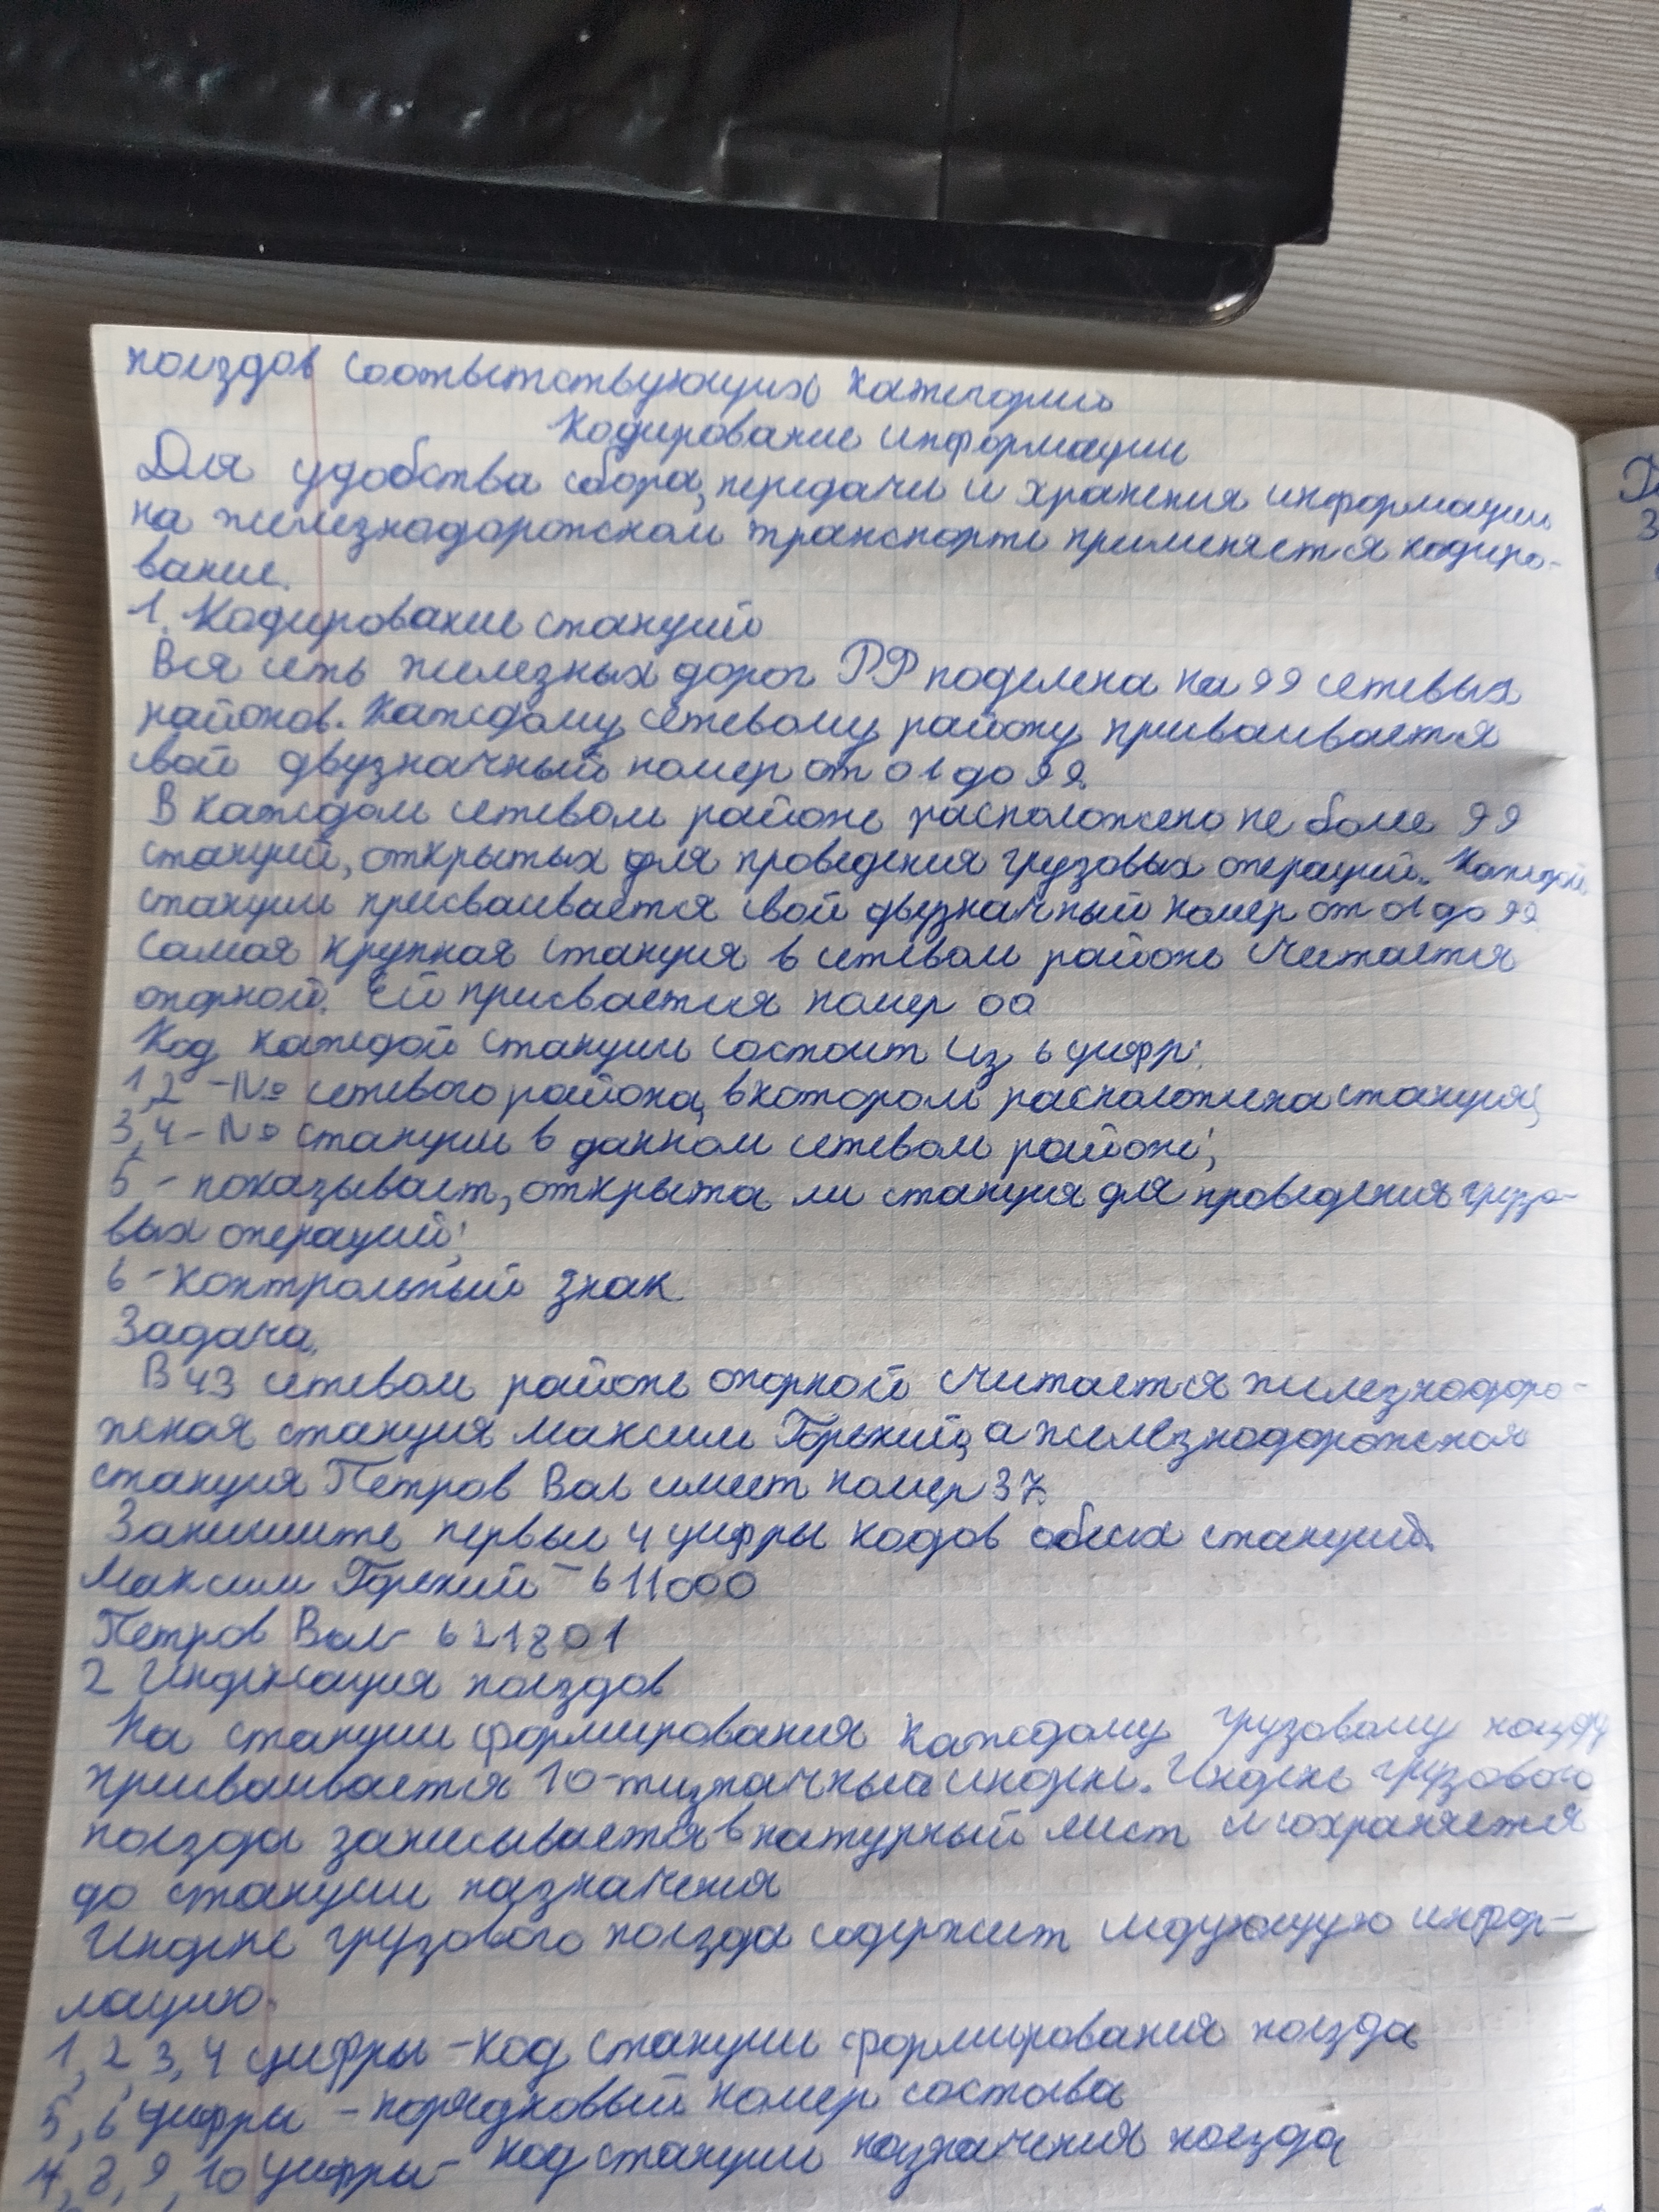 поездов соответствующих категорий
Кодирование информации
Для удобства сбора, передачи и хранения информации
на железнодорожном транспорте применяется кодиро-
вание.
1. Кодирование станций
Вся сеть железных дорог РФ поделена на 99 сетевых
районов. Каждому сетевому району присваивается
свой двузначный номер от 01 до 99.
В каждом сетевом районе расположено не более 99
станций, открытых для проведения грузовых операций. Каждой
станции присваивается свой двузначный номер от 01 до 99
Самая крупная станция в сетевом районе считается
опорной. Ей присвается номер 00
Код каждой станции состоит из 6 цифр:
1,2 - № сетевого района, в котором расположена станция;
3,4 - № станции в данном сетевом районе;
5 - показывает, открыта ли станция для проведения грузо-
вых операций;
6 - контрольный знак
Задача.
В 43 сетевом районе опорной считается железнодоро-
жная станция Максим Горький, а железнодорожная
станция Петров Вал имеет номер 37.
Запишите первые 4 цифры кодов обеих станций.
Максим Горький - 611000
Петров Вал - 621801
2 Индексация поездов
На станции формирования каждому грузовому поезду
присваивается 10-тизначный индекс. Индекс грузового
поезда записывается в натурный лист и сохраняется
до станции назначения
Индекс грузового поезда содержит следующую инфор-
мацию.
1, 2, 3, 4 цифры - код станции формирования поезда
5, 6 цифры - порядковый номер состава
7, 8, 9, 10 цифры - код станции назначения поезда